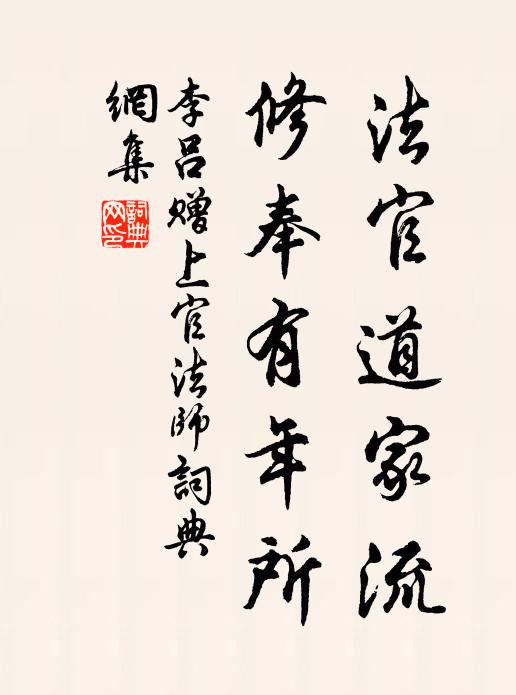 法官道家流
修奉有年所
李呂贈上官法師詞典
網集
詞典
网印